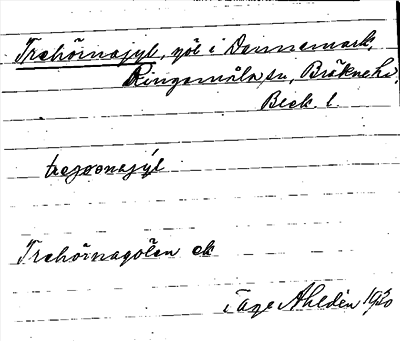 Trehörnagyl, göl i Dannemark,
Ringamåla sn, Bräkne hd,
Blek. l.
Trehörnagölen ek
Tage Ahldén 1930